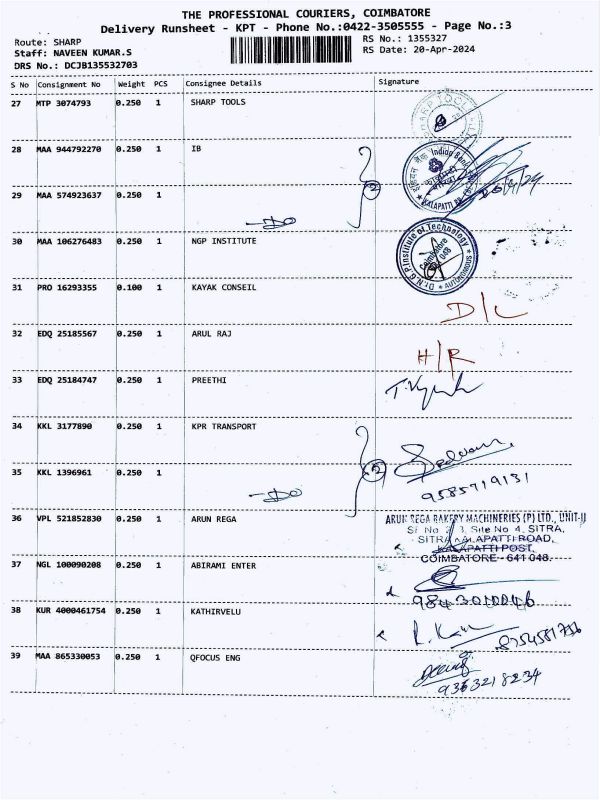 THE PROFESSIONAL COURIERS, COIMBATORE
Delivery Runsheet - KPT - Phone No.:0422-3505555 - Page No.:3
Route: SHARP
RS No.: 1355327
Staff: NAVEEN KUMAR.S
RS Date: 20-Apr-2024
DRS No.: DCJB135532703
S No Consignment No Weight PCS Consignee Details Signature
27 MTP 3074793 0.250 1 SHARP TOOLS
28 MAA 944792270 0.250 1 IB
Indian Bank
KALAPATTI
29 MAA 574923637 0.250 1
DO
2
30 MAA 106276483 0.250 1 NGP INSTITUTE
Dr. N.G.P. Institute of Technology
Coimbatore
048
AUTONOMOUS
31 PRO 16293355 0.100 1 KAYAK CONSEIL
D/L
32 EDQ 25185567 0.250 1 ARUL RAJ
H/R
33 EDQ 25184747 0.250 1 PREETHI
34 KKL 3177890 0.250 1 KPR TRANSPORT
35 KKL 1396961 0.250 1
DO
2
9585719131
36 VPL 521852830 0.250 1 ARUN REGA
ARUN REGA BAKERY MACHINERIES (P) LTD., UNIT-II
Site No 4, SITRA,
KALAPATTI ROAD,
KALAPATTI POST,
COIMBATORE - 641 048.
37 NGL 100090208 0.250 1 ABIRAMI ENTER
38 KUR 4000461754 0.250 1 KATHIRVELU
39 MAA 865330053 0.250 1 QFOCUS ENG
9363218234